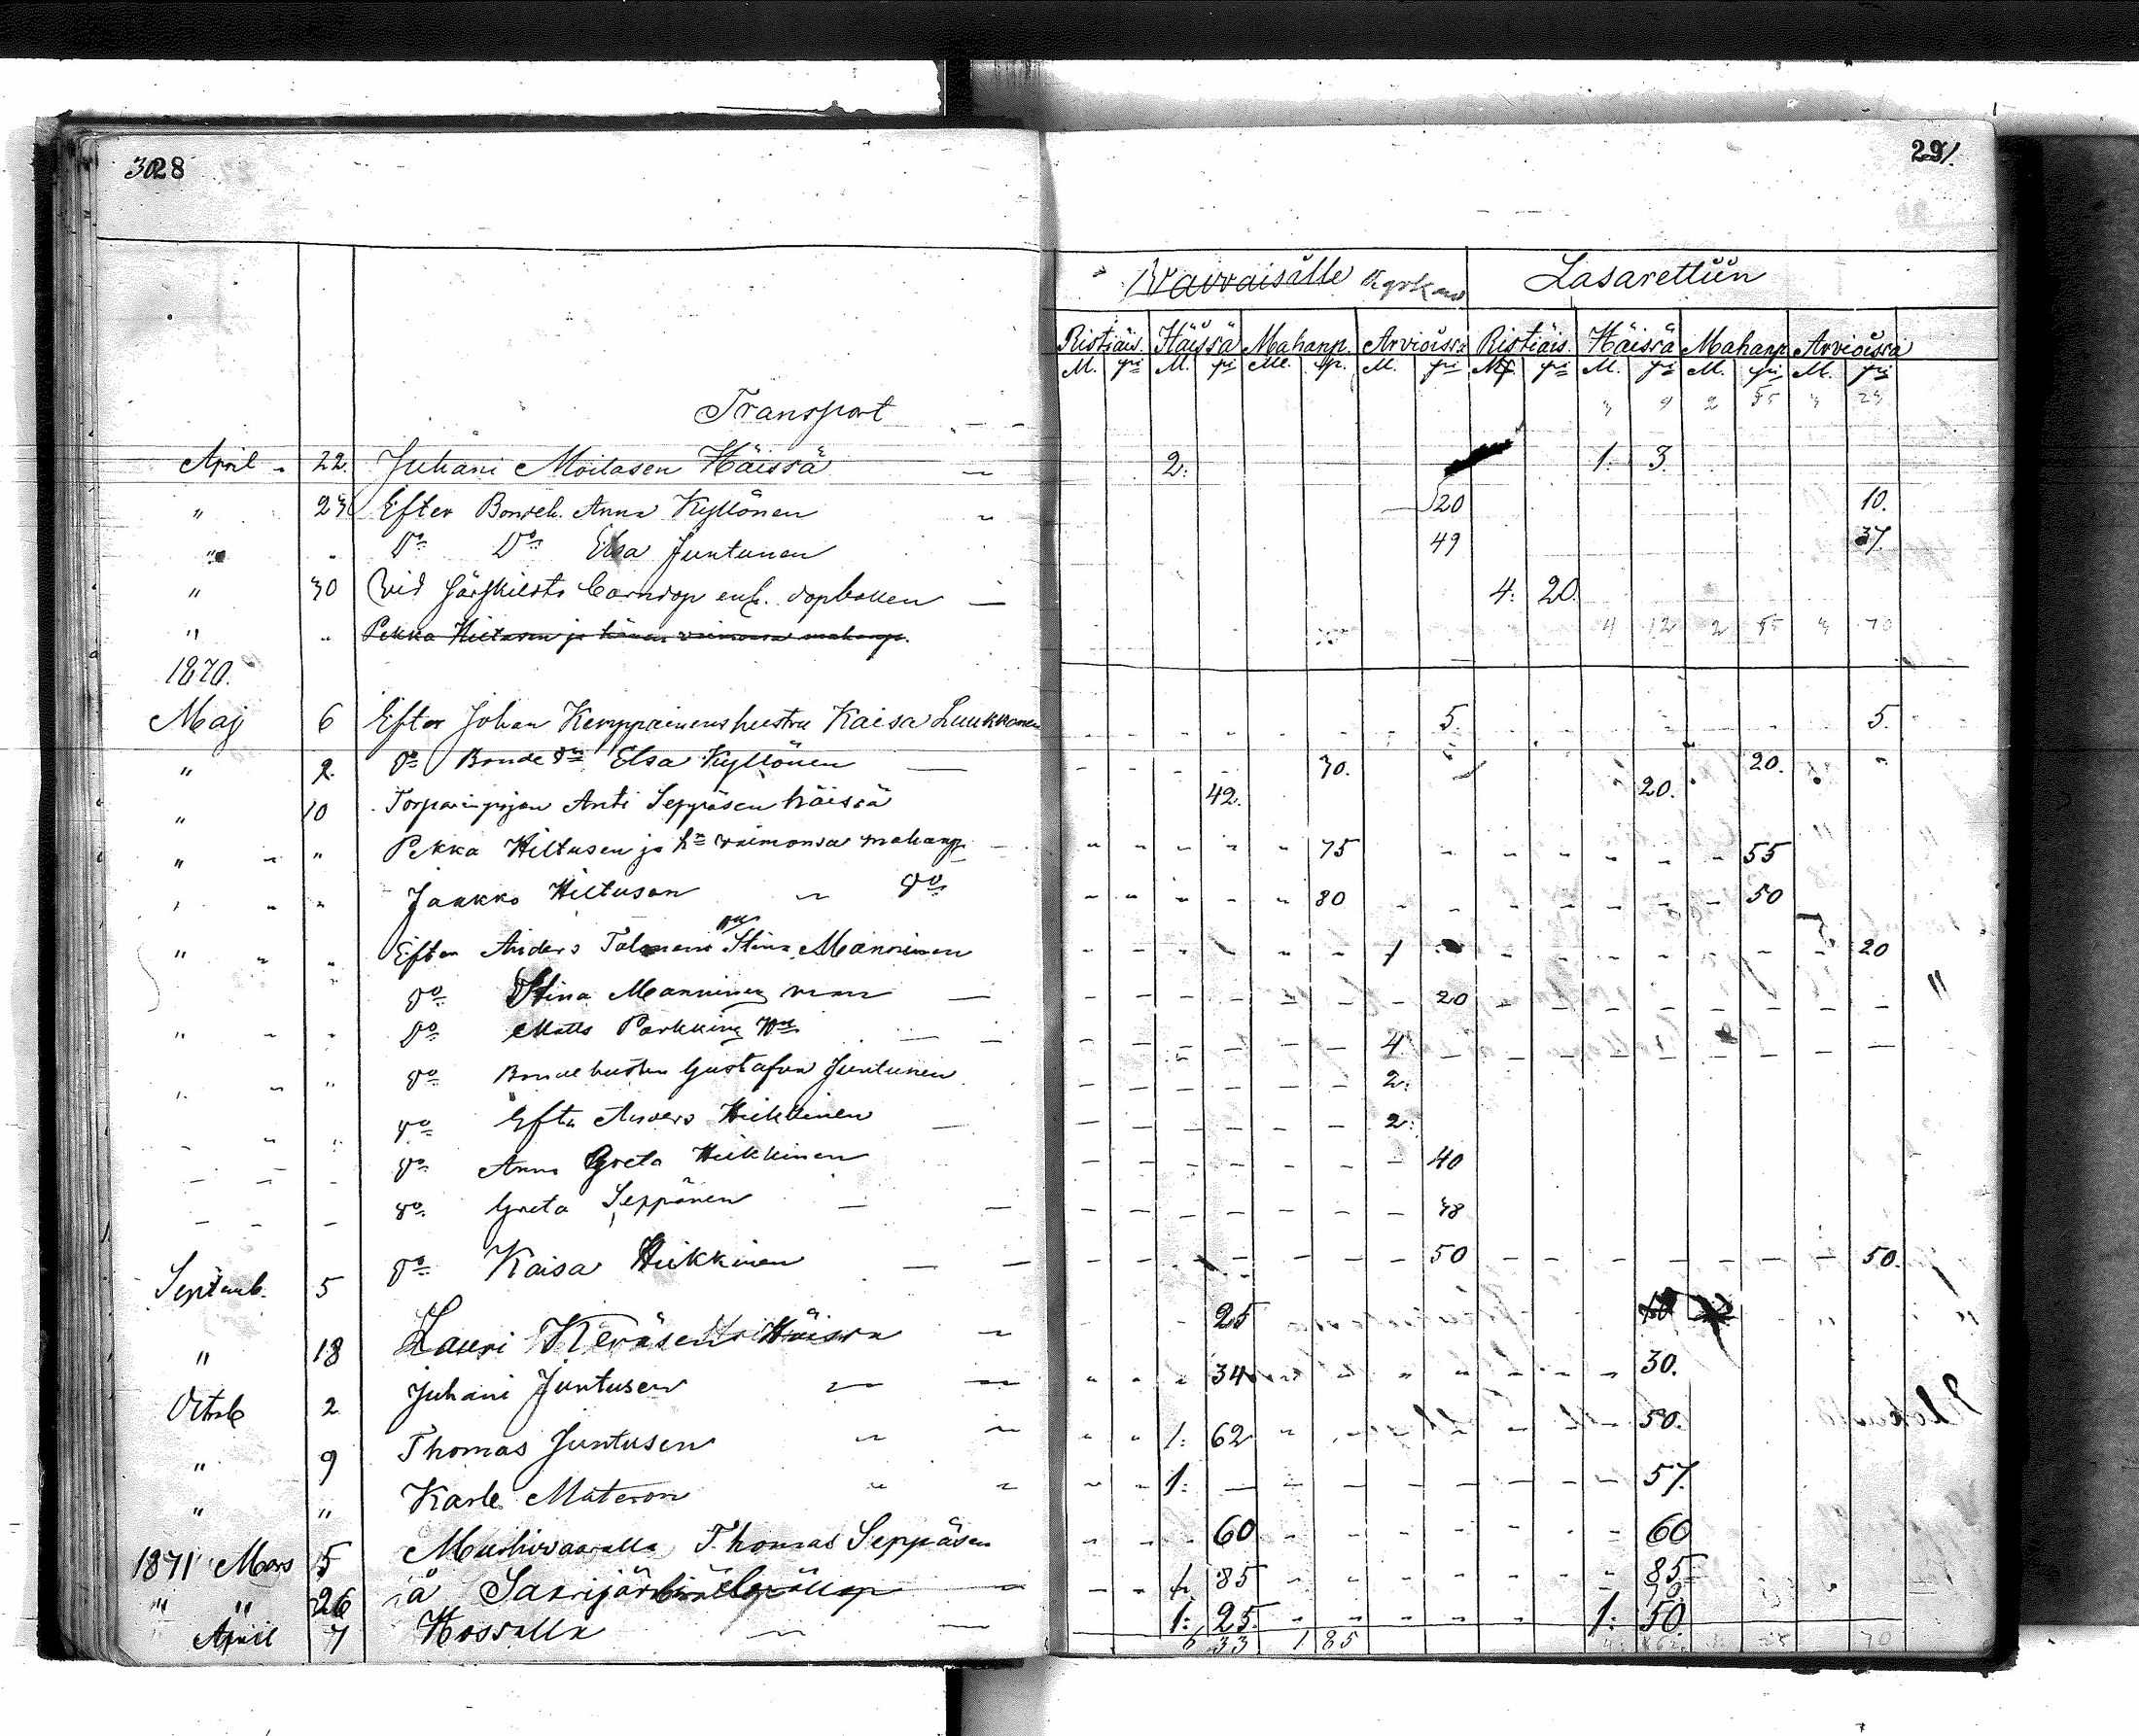 328
291.
Vaivaisille Kyrkans Lasarettiin
Ristiäis. Häissä Mahanp. Arvioissa Ristiäis. Häissä Mahanp. Arvioissa
M. pi M. pi M. p. M. pi M. pi M. pi M. pi M. pi
Transport 9 2 55 23
April 22. Juhani Moilasen Häissä 2. 1. 3.
" 23 Efter Bondeh. Anna Kyllönen 20 10.
" " Do Do Elsa Juntunen 49 37.
" 30 Vid särskilda barndop enl. dopboken 4: 20.
" " Pekka Hiltusen ja hänen vaimonsa mahanp. 4 12 2 55 70
1870.
Maj 6 Efter Johan Kemppainens hustru Kaisa Luukkonen 5. 5.
" 2. Do Bonde Elsa Kyllönen 30. 20.
" 10 Torparinpojan Anti Seppäsen häissä 42. 20.
" " " Pekka Hiltusen ja hn vaimonsa mahanp. 75 55
" " " Jaakko Hiltusen " do 80 50
" " " Efter Anders Tolonens Stina Manninen 1 20
do Stina Manninen 20
" " " do Matts Parkkinen 4
" " " do Bondehustru Gustafva Juntunen 2.
" " do Efter Anders Heikkinen 2.
do Anna Greta Heikkinen 40
do Greta Seppänen 38
do Kaisa Heikkinen 50 50.
Septemb. 5 Lauri Keräsen Häissä 25
" 18 Juhani Juntusen " 34 30.
Octob 2 Thomas Juntusen " 1: 62 50.
" 9 Karle Materon " 1: 57.
" " Thomas Seppäsen 60 60
1871 Mars 5 å Sakrijärvi 85 85
" " 26 Hossalla 1: 25. 1: 50
April 7
6 33 1 85 70